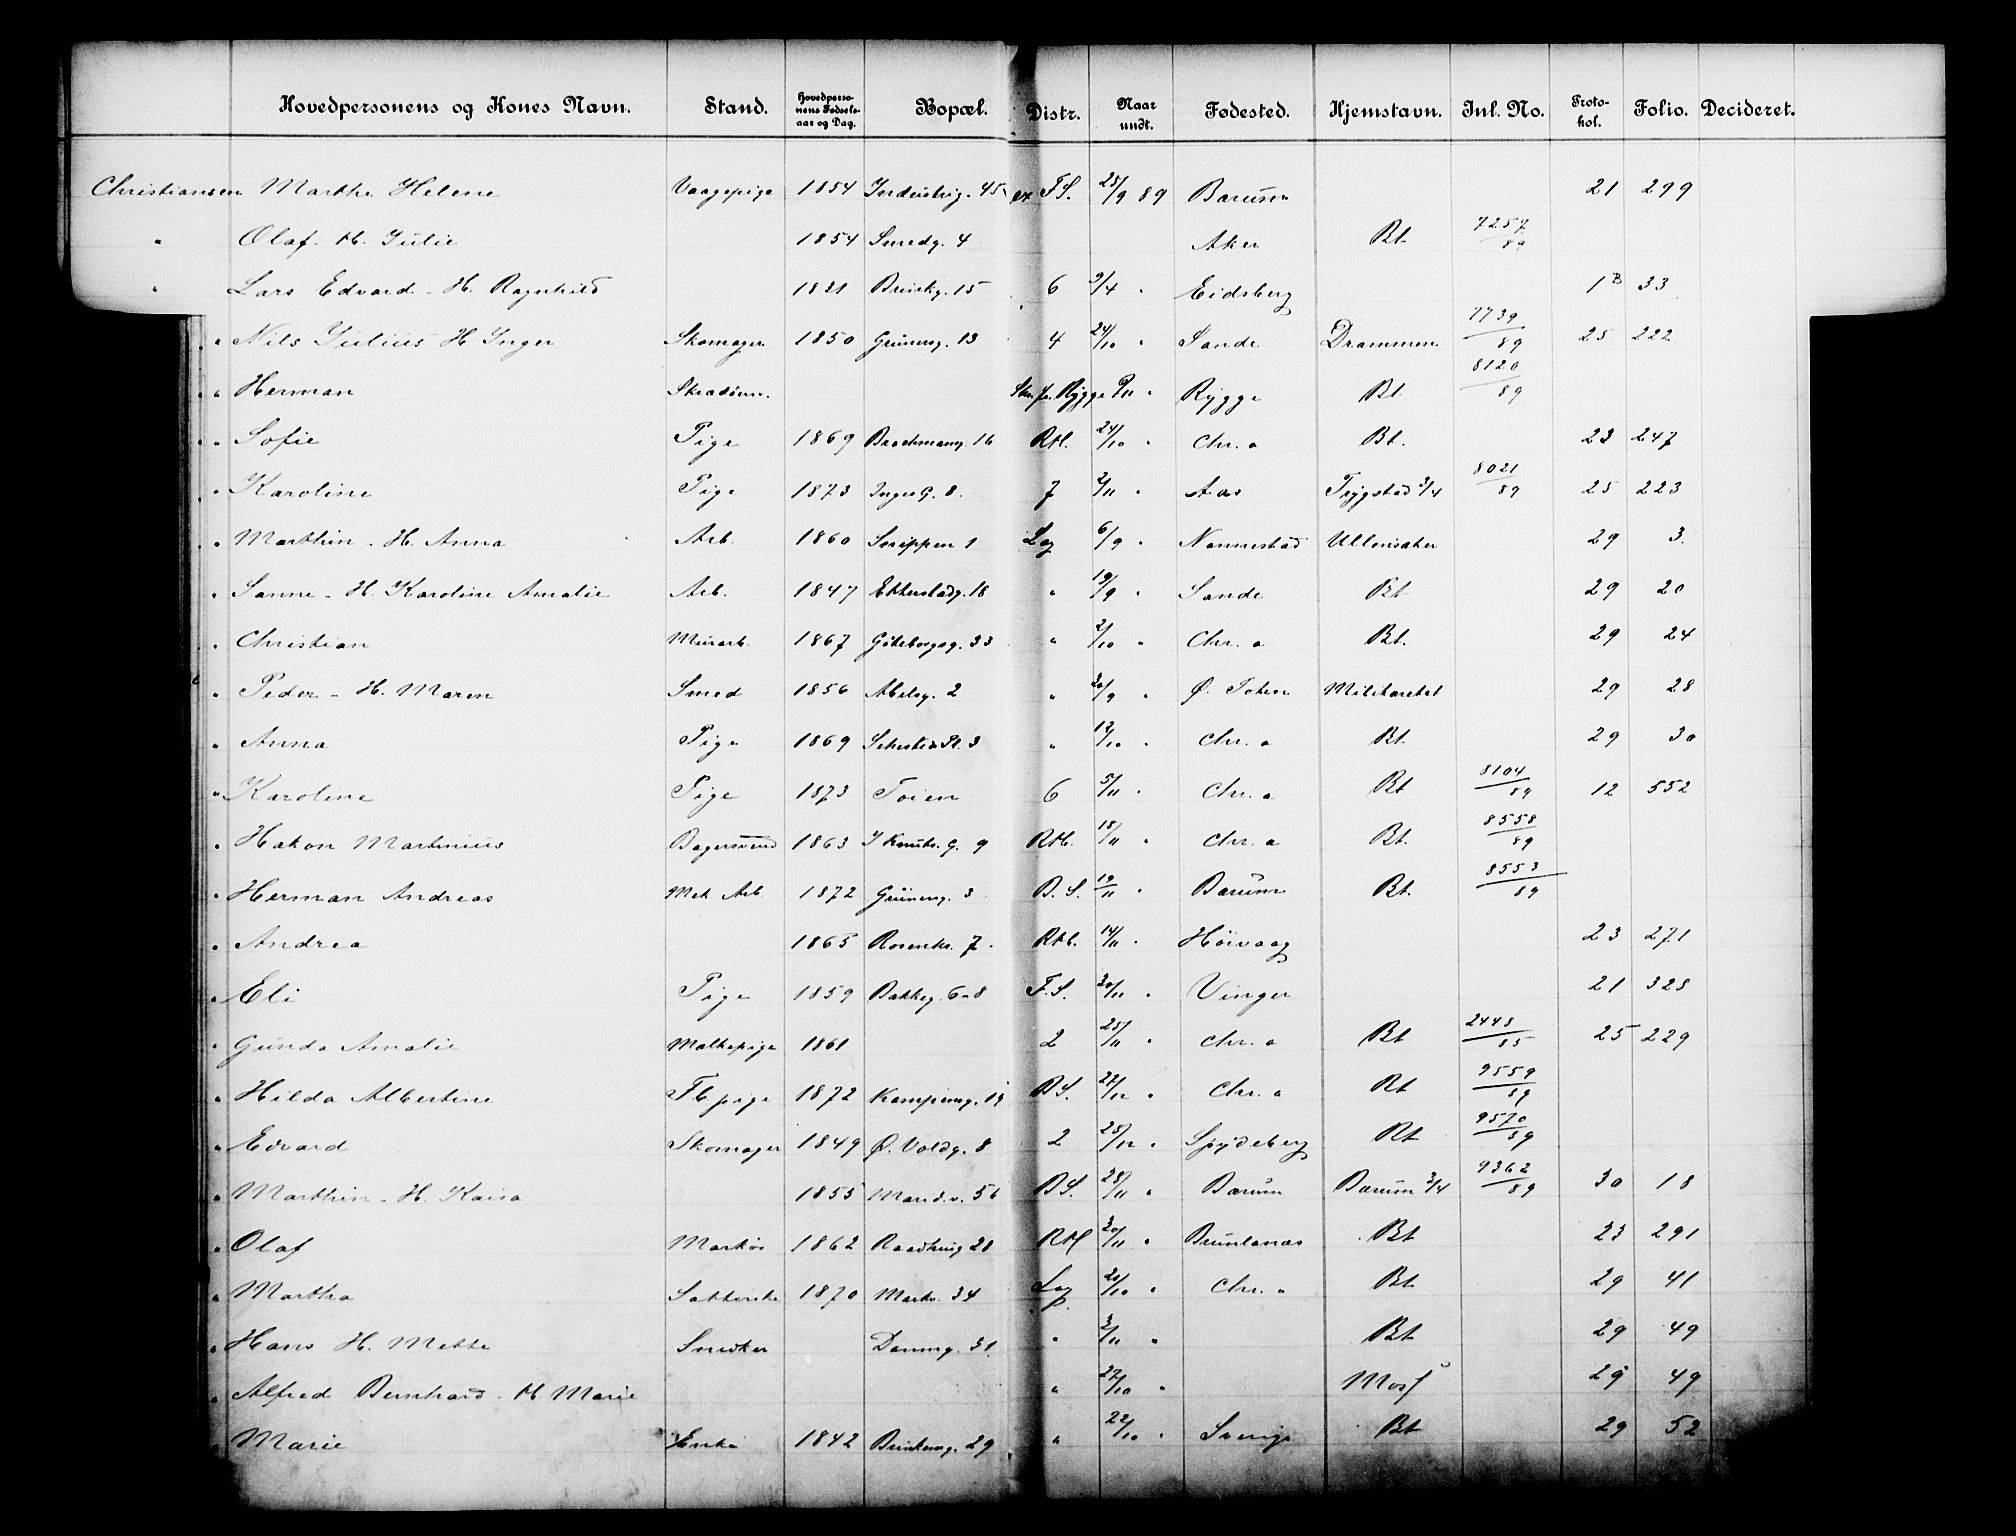 Hovedpersonens og Kones Navn. Stand. Hovedperso-nens Fødsels-aar og Dag. Bopæl. Distr. Naar undt. Fødested. Hjemstavn. Inl. No. Proto-kol. Folio. Decideret.
Christiansen Marthe Helene Vaagepige 1854 Industrig. 45 F.S. 25/9 89 Bærum 21 299
" Olaf. H. Julie 1854 Smedg. 4 Aker Bt. 7257/89
" Lars Edvard - H. Ragnhild 1821 15 6 2/4 " Eidsberg 1B 33
" Nils Julius H Inger Skomager 1850 Grünerg. 13 4 24/10 " Sande Drammen 7739/89 25 222
" Herman Skrædder. Rygge 9/11 " Rygge Bt. 8120/89
" Sofie Pige 1869 Brochmang. 16 RH. 24/10 " Chr. a Bt. 23 247
" Karoline Pige 1873 Inges G. 8. 7 2/11 " Aas Trygstad 3/4 8021/89 25 223
" Marthin - H. Anna Arb. 1860 1 Lag 6/9 " Nannestad Ullensaker 29 3.
" Sanne - H. Karoline Amalie Arb. 1847 Etterstadg. 18 " 19/9 " Sande Bt 29 20
" Christian Murarb. 1867 Göteborgsg. 33 " 2/10 " Chr. a Bt. 29 24
" Peder - H. Maren Smed 1856 Abelsg. 2 " 20/9 " Ø. Toten Militæretat 29 28
" Anna Pige 1869 Sehesteds Pl. 3 " 12/10 " Chr. a Bt. 29 30
" Karoline Pige 1873 Tøien 6 5/11 " Chr. a Bt 8104/89 12 552
" Hakon Martinius Bagersvend 1863 9 RH. 18/11 " Chr. a Bt. 8558/89
" Herman Andreas Mek Arb. 1872 Grünerg. 3 B.S. 19/11 " Bærum Bt. 8553/89
" Andrea 1865 Rosenkr. 7. RH. 14/11 " Høivaag 23 271
" Eli Pige 1859 Bakkeg. 6-8 F.S. 20/11 " Vinger 21 328
" Gunda Amalie Malkepige 1861 2 25/11 " Chr. a Bt 2443/85 25 229
" Hilda Albertine Fb pige 1872 Kampeng. 19 B.S. 27/12 " Chr. a Bt 9559/89
" Edvard Skomager 1849 Ø. Voldg. 8 2 28/12 " Spydeberg Bt 9570/89
" Marthin - H. Kaisa 1855 Marid.v. 56 B.S. 28/11 " Bærum Bærum 3/4 9362/89 30 18
" Olaf 1862 Raadhusg 28 RH 20/11 " Brunlanæs Bt 23 291
" Martha 1870 Markv. 34 Lag 20/10 " Chr. a Bt 29 41
" Hans H. Mette Snedker Dammg. 31 " 2/11 " Bt 29 49
" Alfred Bernhard - H. Marie " 27/10 " Moss 29 49
" Marie Enke 1842 Brinkeng. 29 " 22/10 " Sverige Bt 29 52